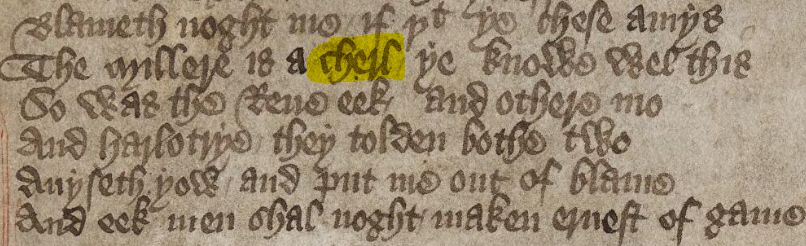 Blameth noght me if þt ye chese amys
The Millere is a cherl ye knowe wel this
So was the Reue eek and othere mo
And harlotrye they tolden bothe two
Auyseth yow and put me out of blame
And eek men shal noght maken ernest of game